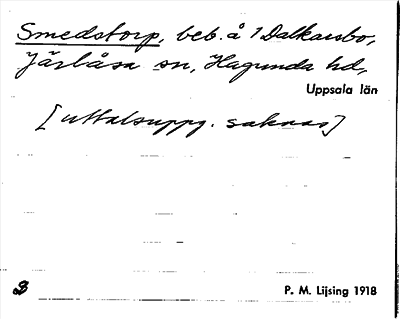 Smedstorp, beb. å 1 Dalkarsbo,
Järlåsa sn, Hagunda hd,
Uppsala län
[uttalsuppg. saknas]
P. M. Lijsing 1918